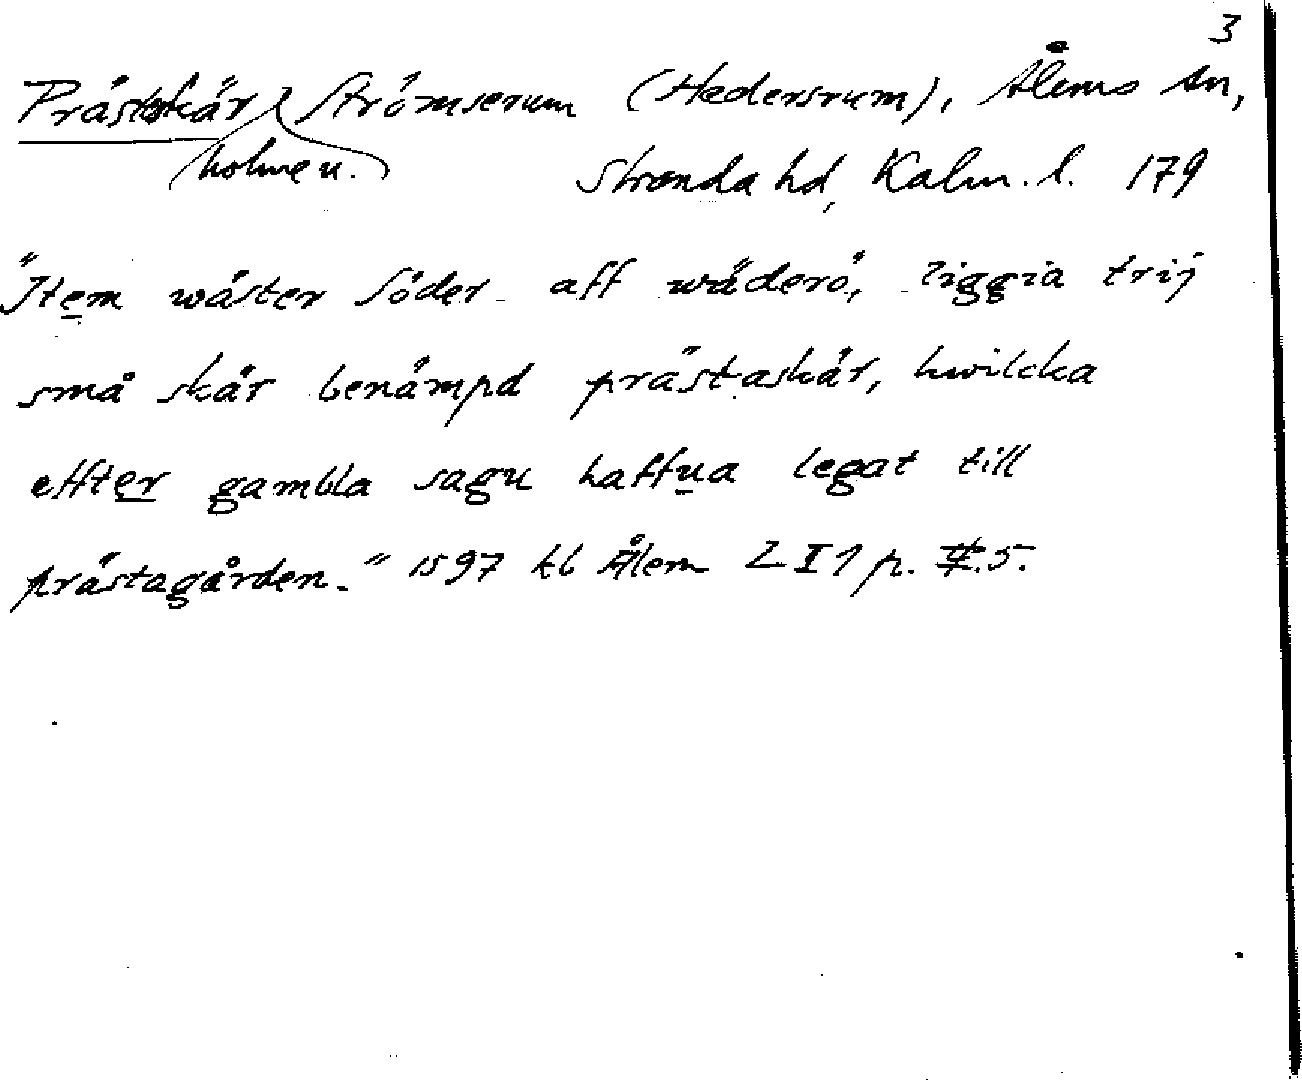 3
Prästskär Strömserum (Hedersrum), Ålems sn,
holmen. Stranda hd, Kalm. l. 179
"Item wäster söder aff wäderö, liggia trij
små skär benämpd prästaskär, hwilcka
effter gambla sagu haffua legat till
prästagården." 1597 tb Ålem L I 1 p. II.5.